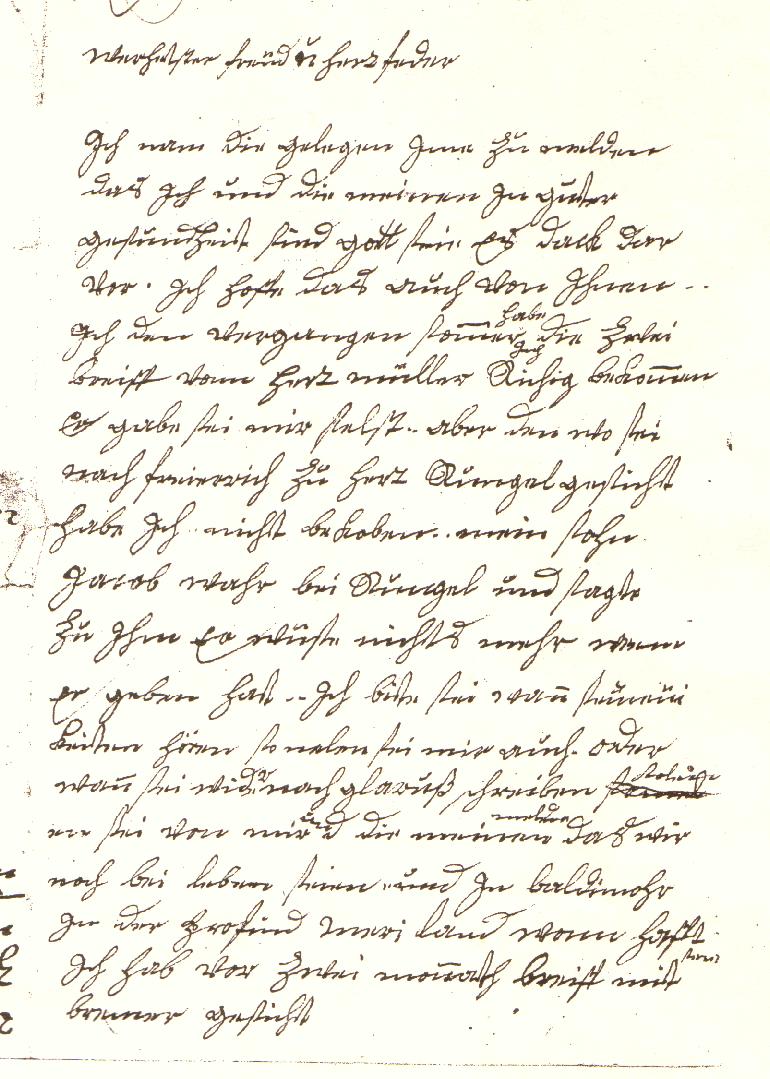 werhtster freünd u herz feder
Ich nam die gelegen Ime zu melden
das Ich und die meinen In guter
gesundheit sind gott seie es dack dar
vor. Ich hofte das auch von Ihnen ..
Ich den vergangen sommer habe die zwei
breiff vom herz müller Ich Richig bekommen
Er gabe sei mir selst.. aber den wo sei
nach freierrich zu herz Rungel geschickt
habe Ich nicht bekoben.. mein sohn
Jacob wahr bei Rungel und sagte
zu Ihm Er wüste nichts mehr wem
Er geben hat .. Ich bite sei wann sei neüi
keiten hören so melen sei mir auch. oder
wann sei wider nach glaruß schreiben
en sei von mir und die meinen melden das wir
noch bei leben seien. und In baldimohr
In der profind meri land wonn hafft
Ich hab vor zwei monnath breiff mit
bremer geschickt